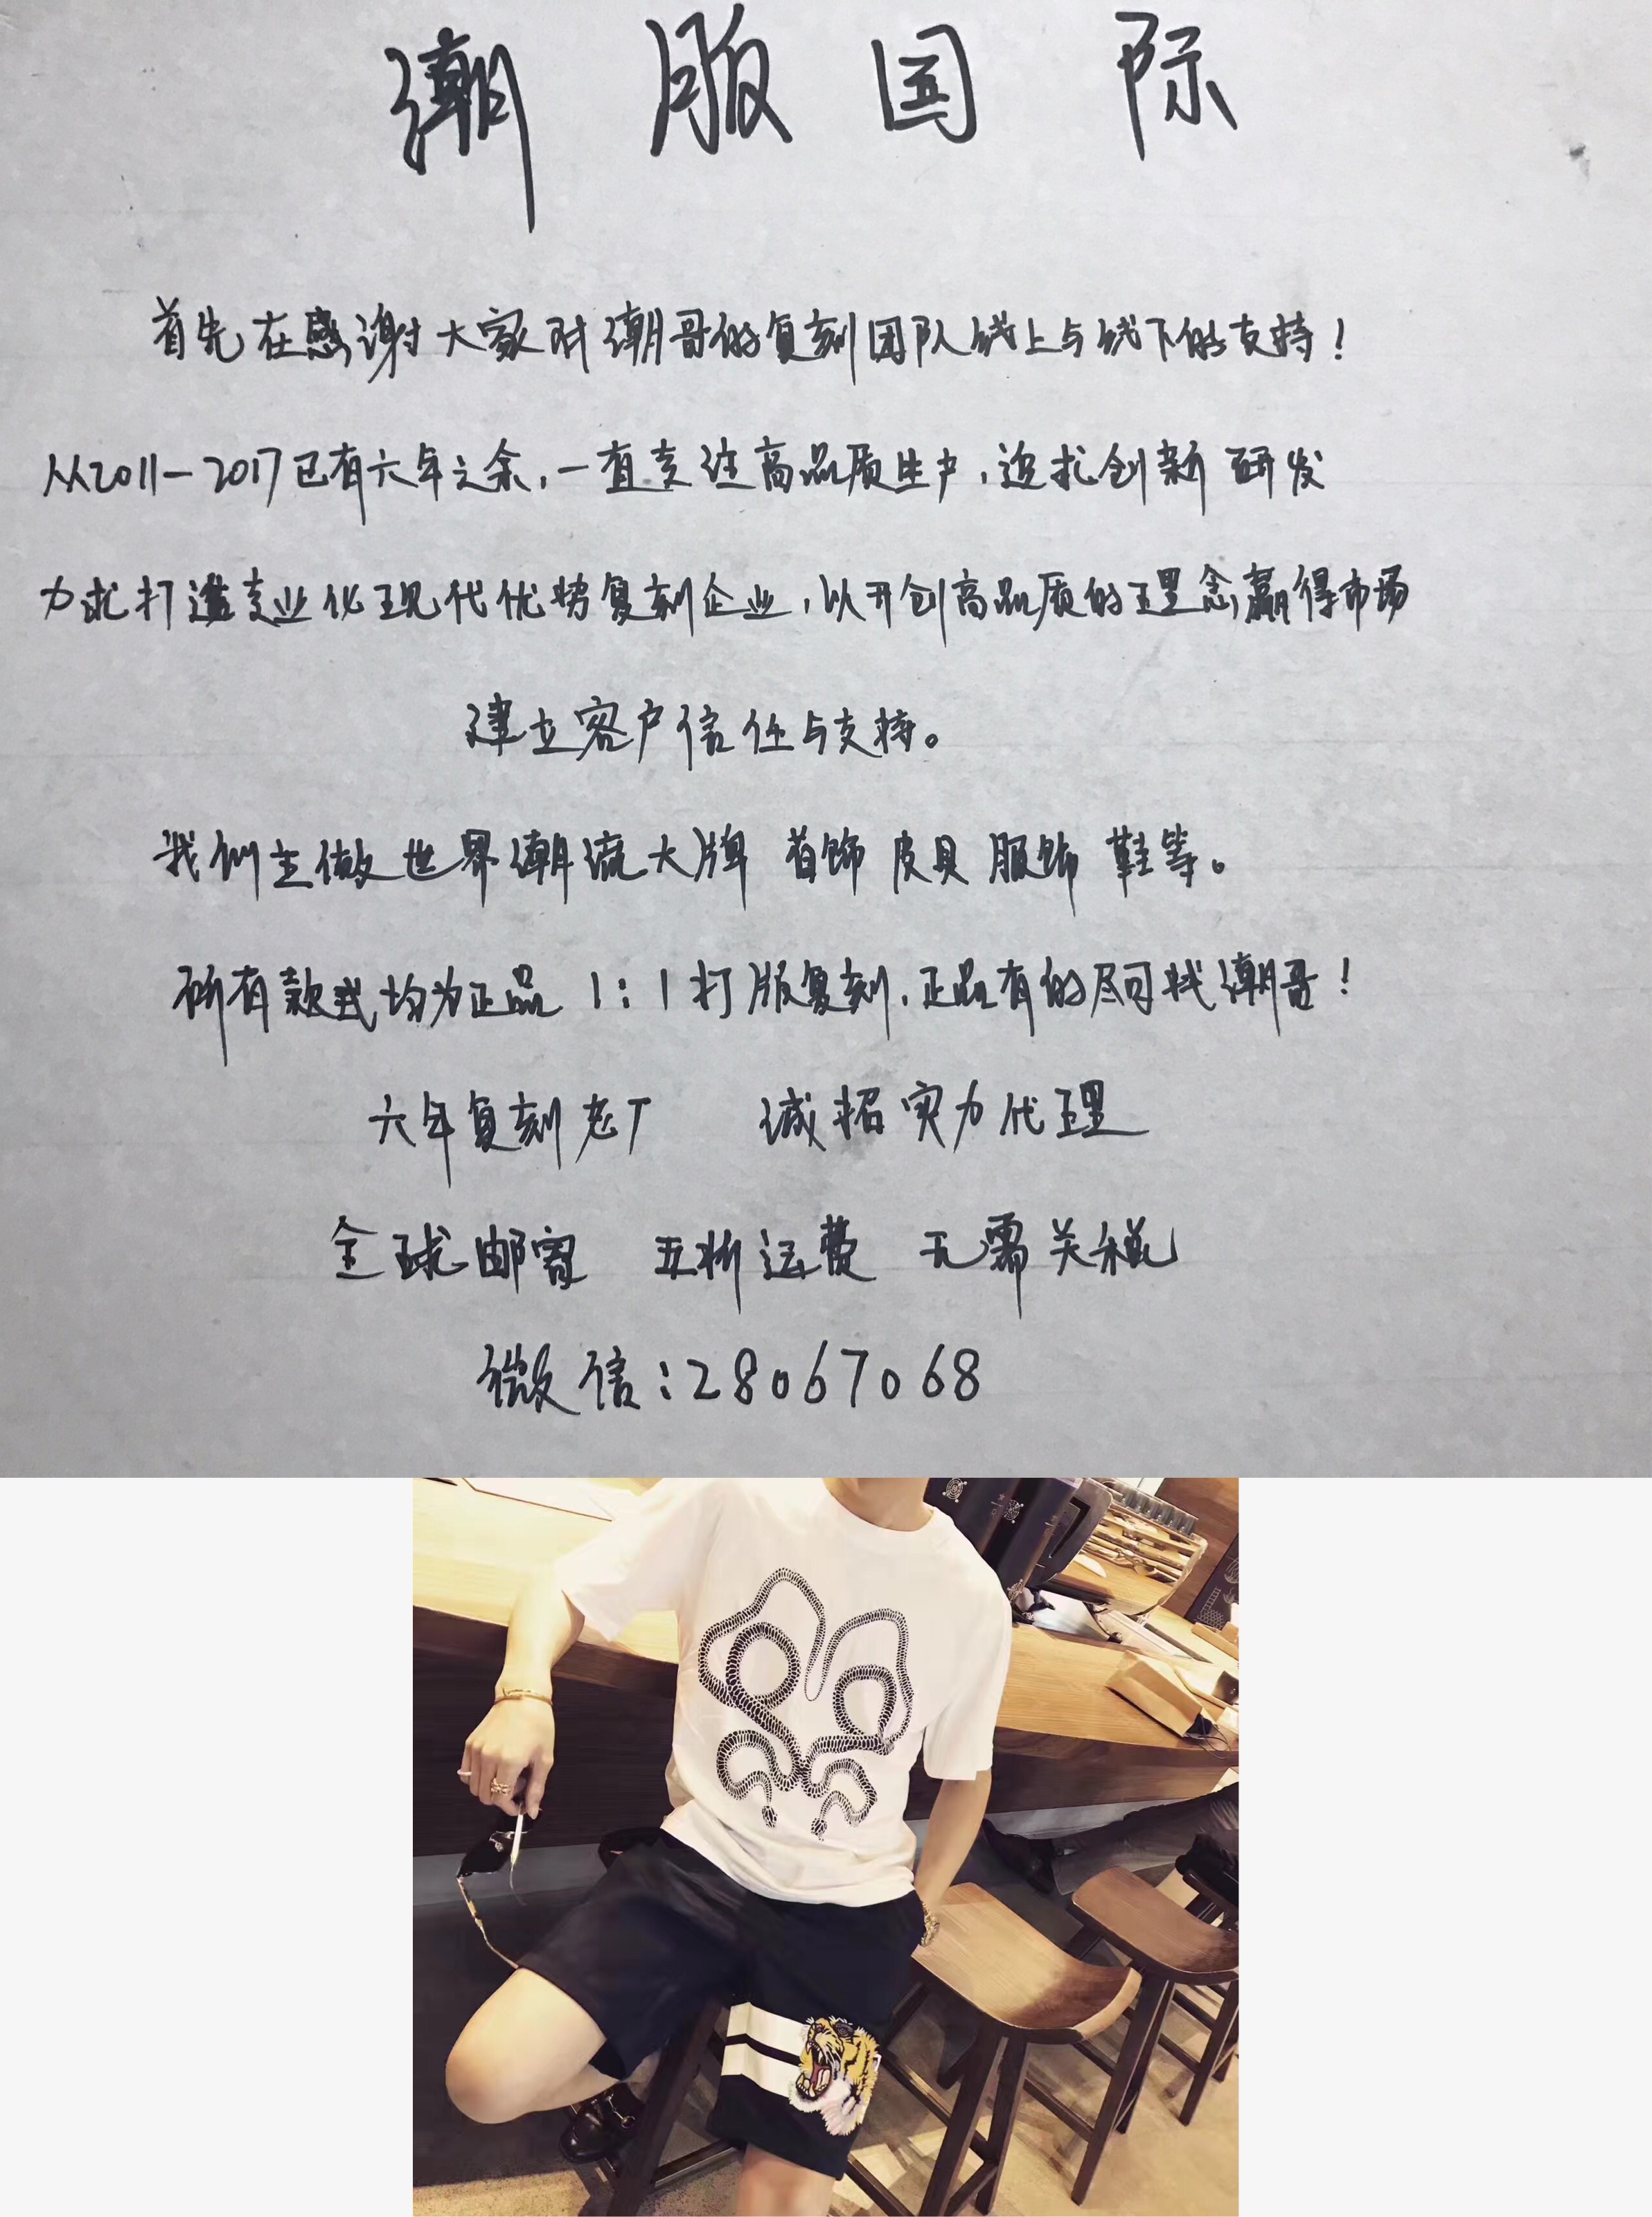 潮服国际
首先在感谢大家对潮哥的复刻团队线上与线下的支持!
从2011-2017已有六年之余,一直专注高品质生产,追求创新研发
力求打造专业化现代优势复刻企业,以开创高品质的理念赢得市场
建立客户信任与支持。
我们主做世界潮流大牌 首饰 皮具 服饰 鞋等。
所有款式均为正品 1:1打版复刻,正品有的尽可找潮哥!
六年复刻老厂 诚招实力代理
全球邮寄 五折运费 无需关税
微信:28067068